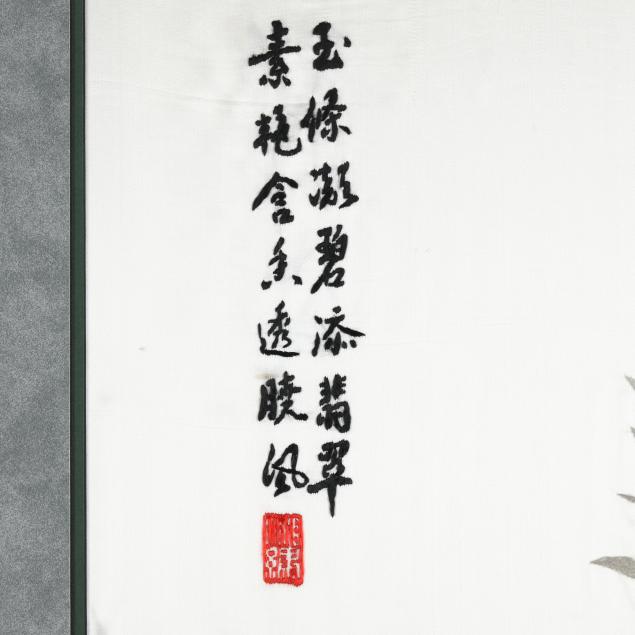 玉條凝碧添翡翠
素艳含香透曉風
湘绣